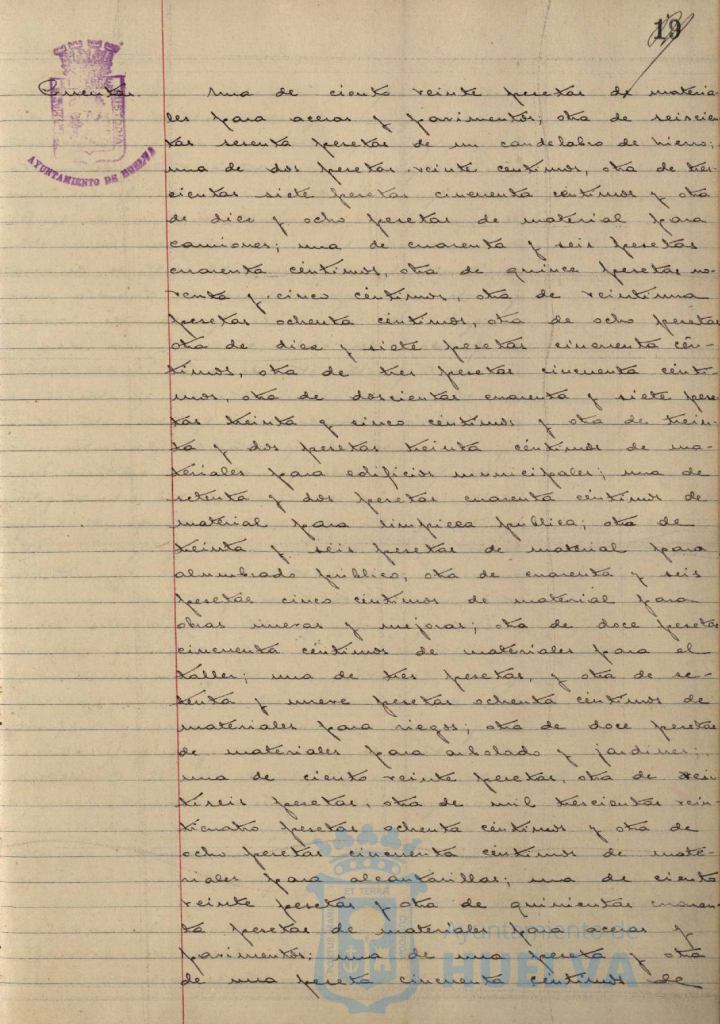 19
Cuentas.
Una de ciento veinte pesetas de materia-
les para aceras y pavimentos; otra de seiscien-
tas sesenta pesetas de un candelabro de hierro;
una de dos pesetas veinte céntimos, otra de tres-
cientas siete pesetas cincuenta céntimos y otra
de diez y ocho pesetas de material para
camiones; una de cuarenta y seis pesetas
cuarenta céntimos, otra de quince pesetas no-
venta y cinco céntimos, otra de veintiuna
pesetas ochenta céntimos, otra de ocho pesetas
otra de diez y siete pesetas cincuenta cén-
timos, otra de tres pesetas cincuenta cénti-
mos, otra de doscientas cuarenta y siete pese-
tas treinta y cinco céntimos y otra de trein-
ta y dos pesetas treinta céntimos de ma-
teriales para edificios municipales; una de
setenta y dos pesetas cuarenta céntimos de
material para limpieza pública; otra de
treinta y seis pesetas de material para
alumbrado público, otra de cuarenta y seis
pesetas cinco céntimos de material para
obras nuevas y mejoras; otra de doce pesetas
cincuenta céntimos de materiales para el
taller; una de tres pesetas, y otra de se-
tenta y nueve pesetas ochenta céntimos de
materiales para riegos; otra de doce pesetas
de materiales para arbolado y jardines;
una de ciento veinte pesetas, otra de vein-
tiseis pesetas, otra de mil trescientas vein-
ticuatro pesetas ochenta céntimos y otra de
ocho pesetas cincuenta céntimos de mate-
riales para alcantarillas; una de ciento
veinte pesetas y otra de quinientas cuaren-
ta pesetas de materiales para aceras y
pavimentos; una de una peseta y otra
de una peseta cincuenta céntimos de
AYUNTAMIENTO DE HUELVA
Ayuntamiento de
HUELVA